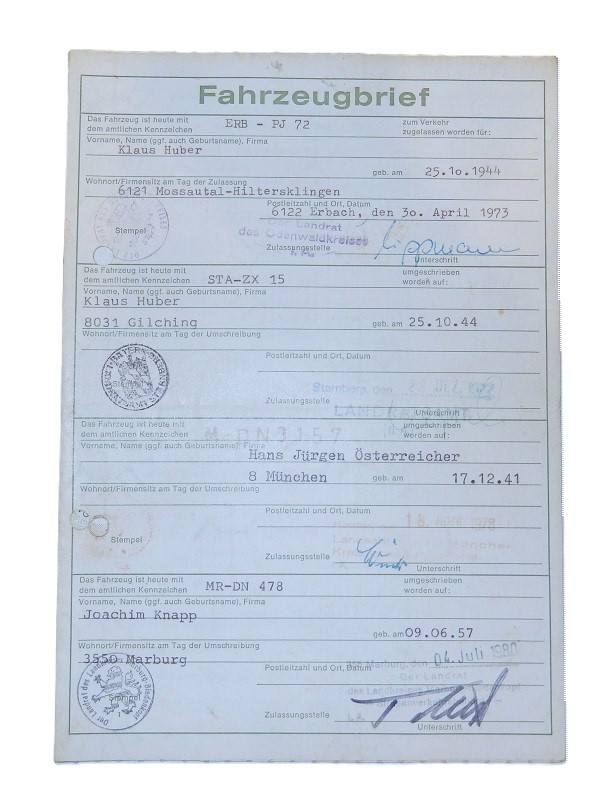 Fahrzeugbrief
Das Fahrzeug ist heute mit
dem amtlichen Kennzeichen ERB - PJ 72 zum Verkehr
zugelassen worden für:
Vorname, Name (ggf. auch Geburtsname), Firma
Klaus Huber
geb. am 25.10.1944
Wohnort/Firmensitz am Tag der Zulassung
6121 Mossautal-Hiltersklingen
Postleitzahl und Ort, Datum
6122 Erbach, den 30. April 1973
Stempel
Der Landrat
des Odenwaldkreises
Zulassungsstelle
Unterschrift
Das Fahrzeug ist heute mit
dem amtlichen Kennzeichen STA-ZX 15 umgeschrieben
worden auf:
Vorname, Name (ggf. auch Geburtsname), Firma
Klaus Huber
8031 Gilching geb. am 25.10.44
Wohnort/Firmensitz am Tag der Umschreibung
Postleitzahl und Ort, Datum
Stempel
Starnberg, den
Zulassungsstelle
Unterschrift
Das Fahrzeug ist heute mit
dem amtlichen Kennzeichen M-DN3157 umgeschrieben
worden auf:
Vorname, Name (ggf. auch Geburtsname), Firma
Hans Jürgen Österreicher
8 München geb. am 17.12.41
Wohnort/Firmensitz am Tag der Umschreibung
Postleitzahl und Ort, Datum
Stempel
Zulassungsstelle
Unterschrift
Das Fahrzeug ist heute mit
dem amtlichen Kennzeichen MR-DN 478 umgeschrieben
worden auf:
Vorname, Name (ggf. auch Geburtsname), Firma
Joachim Knapp
geb. am 09.06.57
Wohnort/Firmensitz am Tag der Umschreibung
3550 Marburg
Postleitzahl und Ort, Datum
355 Marburg, den 04. Juli 1980
Der Landrat
Der Landrat des Landkreises Marburg-Biedenkopf
Stempel
Zulassungsstelle
Unterschrift